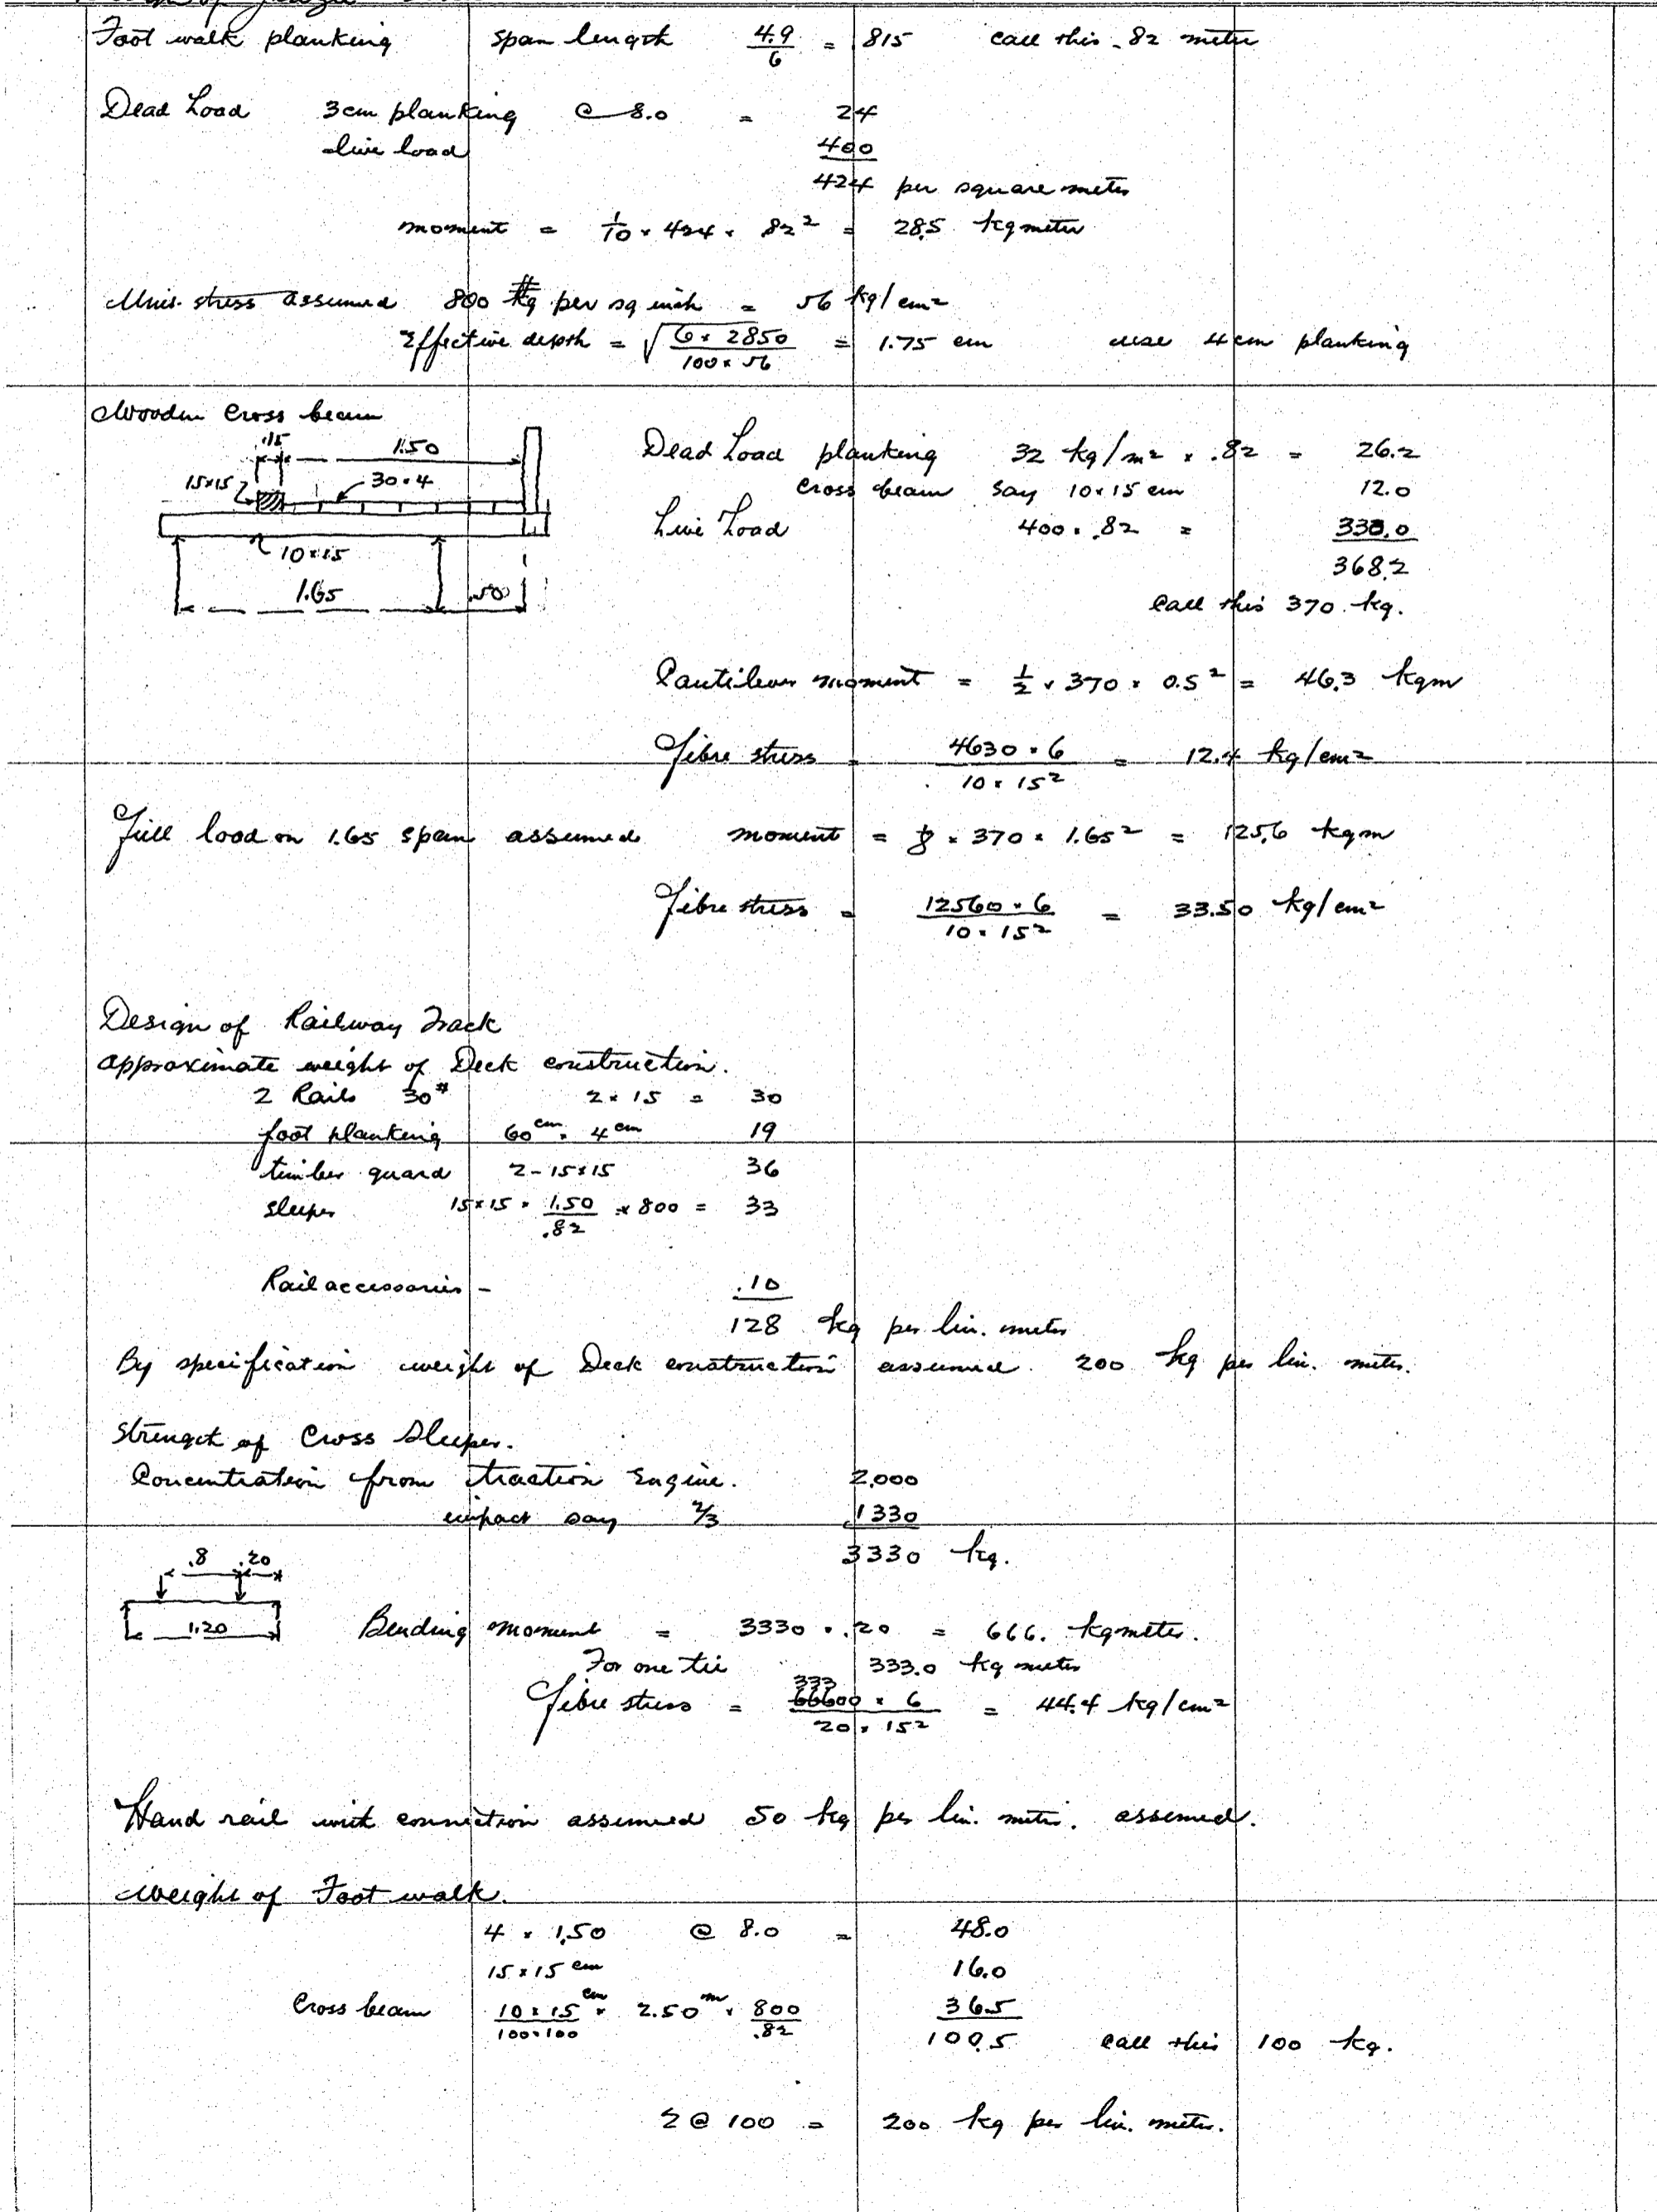 Foot walk planking span length 4.9/6 = 815 call this .82 meter
Dead Load 3cm planking @ 8.0 = 24
live load 400
424 per square meter
moment = 1/10 × 424 × .82² = 28.5 kg meter
Unit stress assumed 800 # per sq inch = 56 kg/cm²
Effective depth = √(6 × 2850 / 100 × 56) = 1.75 cm use 4cm planking
Wooden Cross beam
.15
1.50
15×15
30×4
10×15
1.65
.50
Dead Load planking 32 kg/m² × .82 = 26.2
Cross beam say 10×15 cm 12.0
Live Load 400 × .82 = 330.0
368.2
Call this 370 kg.
Cantilever moment = 1/2 × 370 × 0.5² = 46.3 kgm
Fibre stress = 4630 × 6 / 10 × 15² = 12.4 kg/cm²
Full load on 1.65 span assumed moment = 1/8 × 370 × 1.65² = 125.6 kgm
Fibre stress = 12560 × 6 / 10 × 15² = 33.50 kg/cm²
Design of Railway Track
approximate weight of Deck construction.
2 Rails 30# 2 × 15 = 30
foot planking 60cm × 4cm 19
timber guard 2-15×15 36
sleeper 15×15 × 1.50/.82 × 800 = 33
Rail accessories - .10
128 kg per lin. meter
By specification weight of Deck construction assumed 200 kg per lin. meter.
Strength of Cross Sleeper.
Concentration from traction Engine. 2,000
impact say 2/3 1330
3330 kg.
.8 .20
1.20
Bending moment = 3330 × .20 = 666. kg meter.
For one tie 333.0 kg meter
333
Fibre stress = 66600 × 6 / 20 × 15² = 44.4 kg/cm²
Hand rail with connection assumed 50 kg per lin. meter. assumed.
Weight of Foot walk.
4 × 1.50 @ 8.0 = 48.0
15×15 cm 16.0
Cross beam 10×15 cm/100×100 × 2.50 m × 800/.82 36.5
100.5 call this 100 kg.
2 @ 100 = 200 kg per lin. meter.